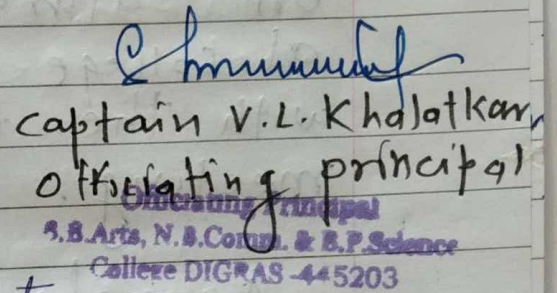 captain V.L. Khalatkar,
officiating principal
Officiating Principal
B.B.Arts, N.B.Comm. & B.P.Science
College DIGRAS -445203